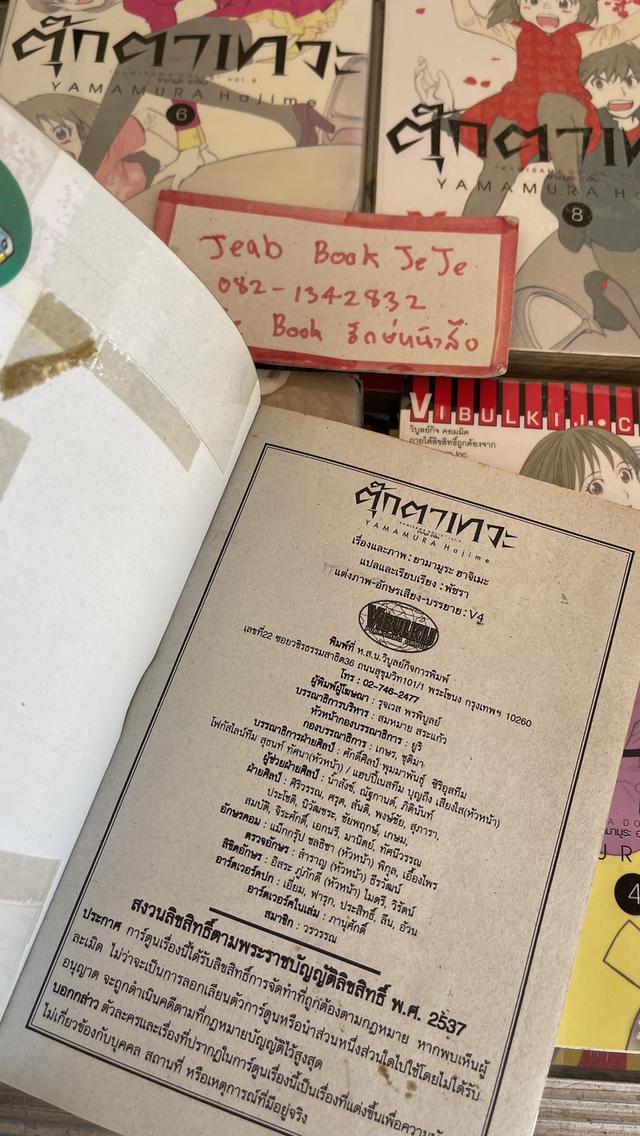 ตุ๊กตาเทวะ
YAMAMURA Hajime
6
ตุ๊กตาเท
YAMAMURA
8
Jeab Book JeJe
082-1342832
Book
VIBULKIJ·C
วิบูลย์กิจ คอมมิค
ภายใต้ลิขสิทธิ์ถูกต้องจาก
Inc.
ตุ๊กตาเทวะ
YAMAMURA Hajime
เรื่องและภาพ : ยามามูระ ฮาจิเมะ
แปลและเรียบเรียง : พัชรา
แต่งภาพ-อักษรเสียง-บรรยาย : V4
VIBULKIJ
พิมพ์ที่ ห.ส.น.วิบูลย์กิจการพิมพ์
เลขที่22 ซอยวชิรธรรมสาธิต36 ถนนสุขุมวิท101/1 พระโขนง กรุงเทพฯ 10260
โทร : 02-746-2477
ผู้พิมพ์ผู้โฆษณา : รุจเวส พรพิบูลย์
บรรณาธิการบริหาร : สมหมาย สระแก้ว
หัวหน้ากองบรรณาธิการ : ยูริ
กองบรรณาธิการ : เกษร, ชุติมา
บรรณาธิการฝ่ายศิลป์ : ศักดิ์ศิลป์ พุมมาพันธุ์ ซิริอุสทีม
โฟกัสไลน์ทีม สุธนท์ ทัศนา(หัวหน้า) / แฮปปี้เนสทีม บุญถึง เสียงใส(หัวหน้า)
ผู้ช่วยฝ่ายศิลป์ : น้ำลังช์, ณัฐกานต์, ภิตินันท์
ฝ่ายศิลป์ : ศิริวรรณ, ศรุต, สันติ, พงษ์ชัย, สุภารา,
ประโชติ, นิวัฒชระ, ชัยพฤกษ์, เกษม,
สมบัติ, จิระศักดิ์, เอกนรี, มานิตย์, ทัศนีวรรณ
อักษรคอม : แม็กกรุ๊ป ชลธิชา (หัวหน้า) พิกุล, เอื้องไพร
ตรวจอักษร : สำราญ (หัวหน้า) ธีรวัฒน์
ลิขิตอักษร : อิสระ ภูภักดี (หัวหน้า) ไมตรี, วิรัตน์
อาร์ตเวอร์คปก : เอี่ยม, ฟารุก, ประสิทธิ์, ลีน, อ้วน
อาร์ตเวอร์คในเล่ม : ภานุศักดิ์
สมาชิก : วรวรรณ
สงวนลิขสิทธิ์ตามพระราชบัญญัติลิขสิทธิ์ พ.ศ. 2537
ประกาศ การ์ตูนเรื่องนี้ได้รับลิขสิทธิ์การจัดทำที่ถูกต้องตามกฎหมาย หากพบเห็นผู้
ละเมิด ไม่ว่าจะเป็นการลอกเลียนตัวการ์ตูนหรือนำส่วนหนึ่งส่วนใดไปใช้โดยไม่ได้รับ
อนุญาต จะถูกดำเนินคดีตามที่กฎหมายบัญญัติไว้สูงสุด
บอกกล่าว ตัวละครและเรื่องที่ปรากฏในการ์ตูนเรื่องนี้เป็นเรื่องที่แต่งขึ้นเพื่อความ
ไม่เกี่ยวข้องกับบุคคล สถานที่ หรือเหตุการณ์ที่มีอยู่จริง
4